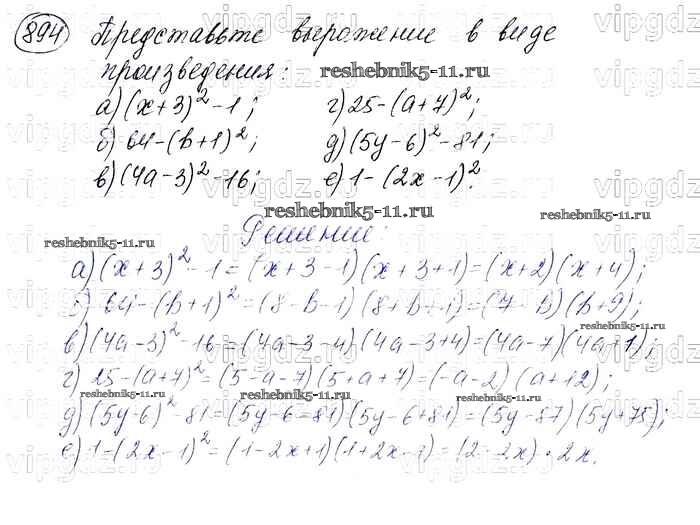 894 Представьте выражение в виде
произведения: reshebnik5-11.ru
а) (x+3)² - 1; г) 25 - (a+7)²;
б) 64 - (b+1)²; д) (5y-6)² - 81;
в) (4a-3)² - 16; е) 1 - (2x-1)².
reshebnik5-11.ru
reshebnik5-11.ru
Решение:
reshebnik5-11.ru
а) (x+3)² - 1 = (x+3-1)(x+3+1) = (x+2)(x+4);
б) 64 - (b+1)² = (8-b-1)(8+b+1) = (7-b)(b+9);
reshebnik5-11.ru
в) (4a-3)² - 16 = (4a-3-4)(4a-3+4) = (4a-7)(4a+1);
г) 25 - (a+7)² = (5-a-7)(5+a+7) = (-a-2)(a+12);
reshebnik5-11.ru
reshebnik5-11.ru
д) (5y-6)² - 81 = (5y-6-81)(5y-6+81) = (5y-87)(5y+75);
е) 1 - (2x-1)² = (1-2x+1)(1+2x-1) = (2-2x)·2x.